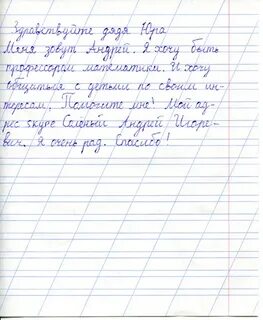 Здравствуйте дядя Юра
Меня зовут Андрей. Я хочу быть
профессором математики. И хочу
общаться с детьми по своим ин-
тересам. Помогите мне! Мой ад-
рес skype Солёный Андрей Игоре-
вич. Я очень рад. Спасибо!